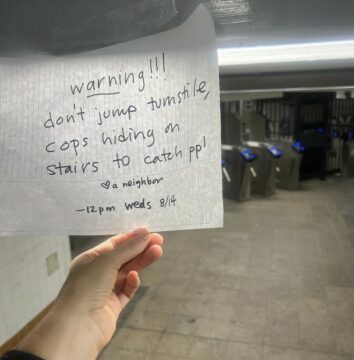 warning!!!
don't jump turnstile,
cops hiding on
stairs to catch ppl
♡ a neighbor
-12pm weds 8/14